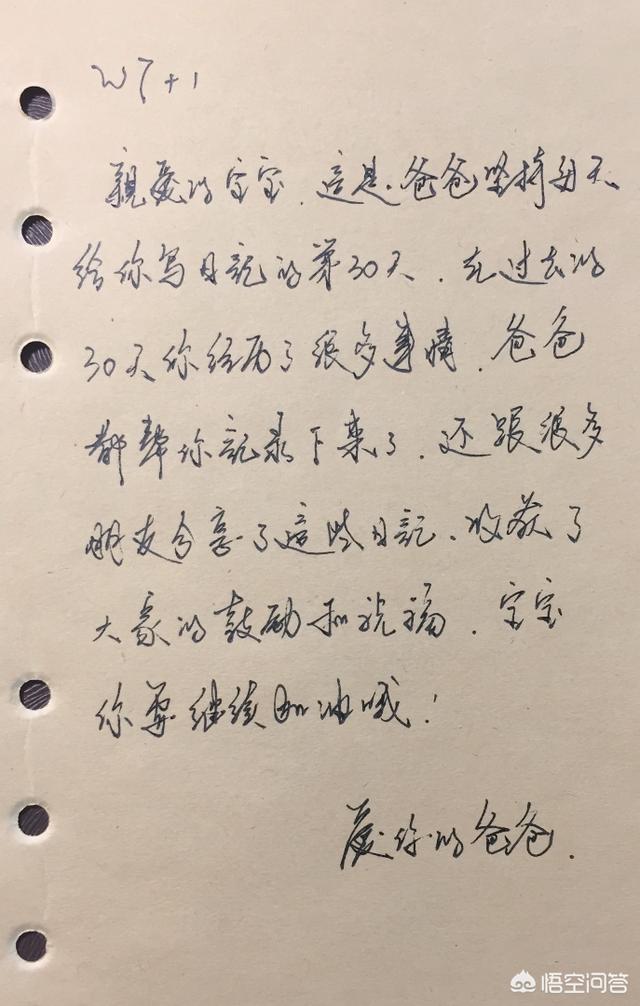 W7+1
親愛的宝宝,这是爸爸坚持每天
给你写日記的第30天.在过去的
30天你经历了很多事情,爸爸
都帮你記录下来了.还跟很多
朋友分享了這些日記,收获了
大家的鼓励和祝福.宝宝
你要继续加油哦!
愛你的爸爸.
悟空问答